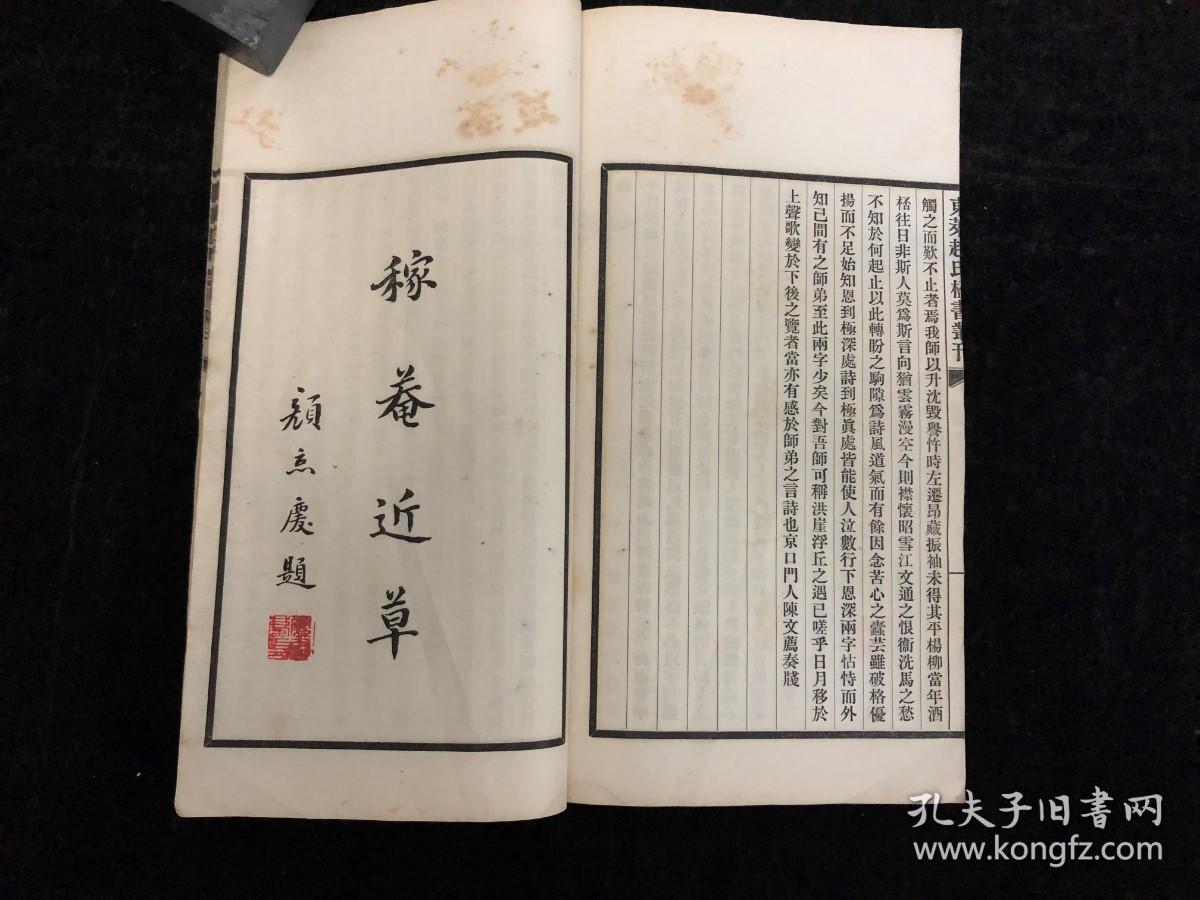 東萊趙氏楹書叢刊
觸之而歎不止者焉我師以升沈毀譽忤時左遷昂藏振袖未得其平楊柳當年酒
桮往日非斯人莫爲斯言向猶雲霧漫空今則襟懷昭雪江文通之恨衞洗馬之愁
不知於何起止以此轉盼之駒隙爲詩風道氣而有餘因念苦心之蠹芸雖破格優
揚而不足始知恩到極深處詩到極眞處皆能使人泣數行下恩深兩字怙恃而外
知己間有之師弟至此兩字少矣今對吾師可稱洪崖浮丘之遇已嗟乎日月移於
上聲歌變於下後之覽者當亦有感於師弟之言詩也京口門人陳文薦奏牋
稼菴近草
顏惠慶題
孔夫子旧书网
www.kongfz.com